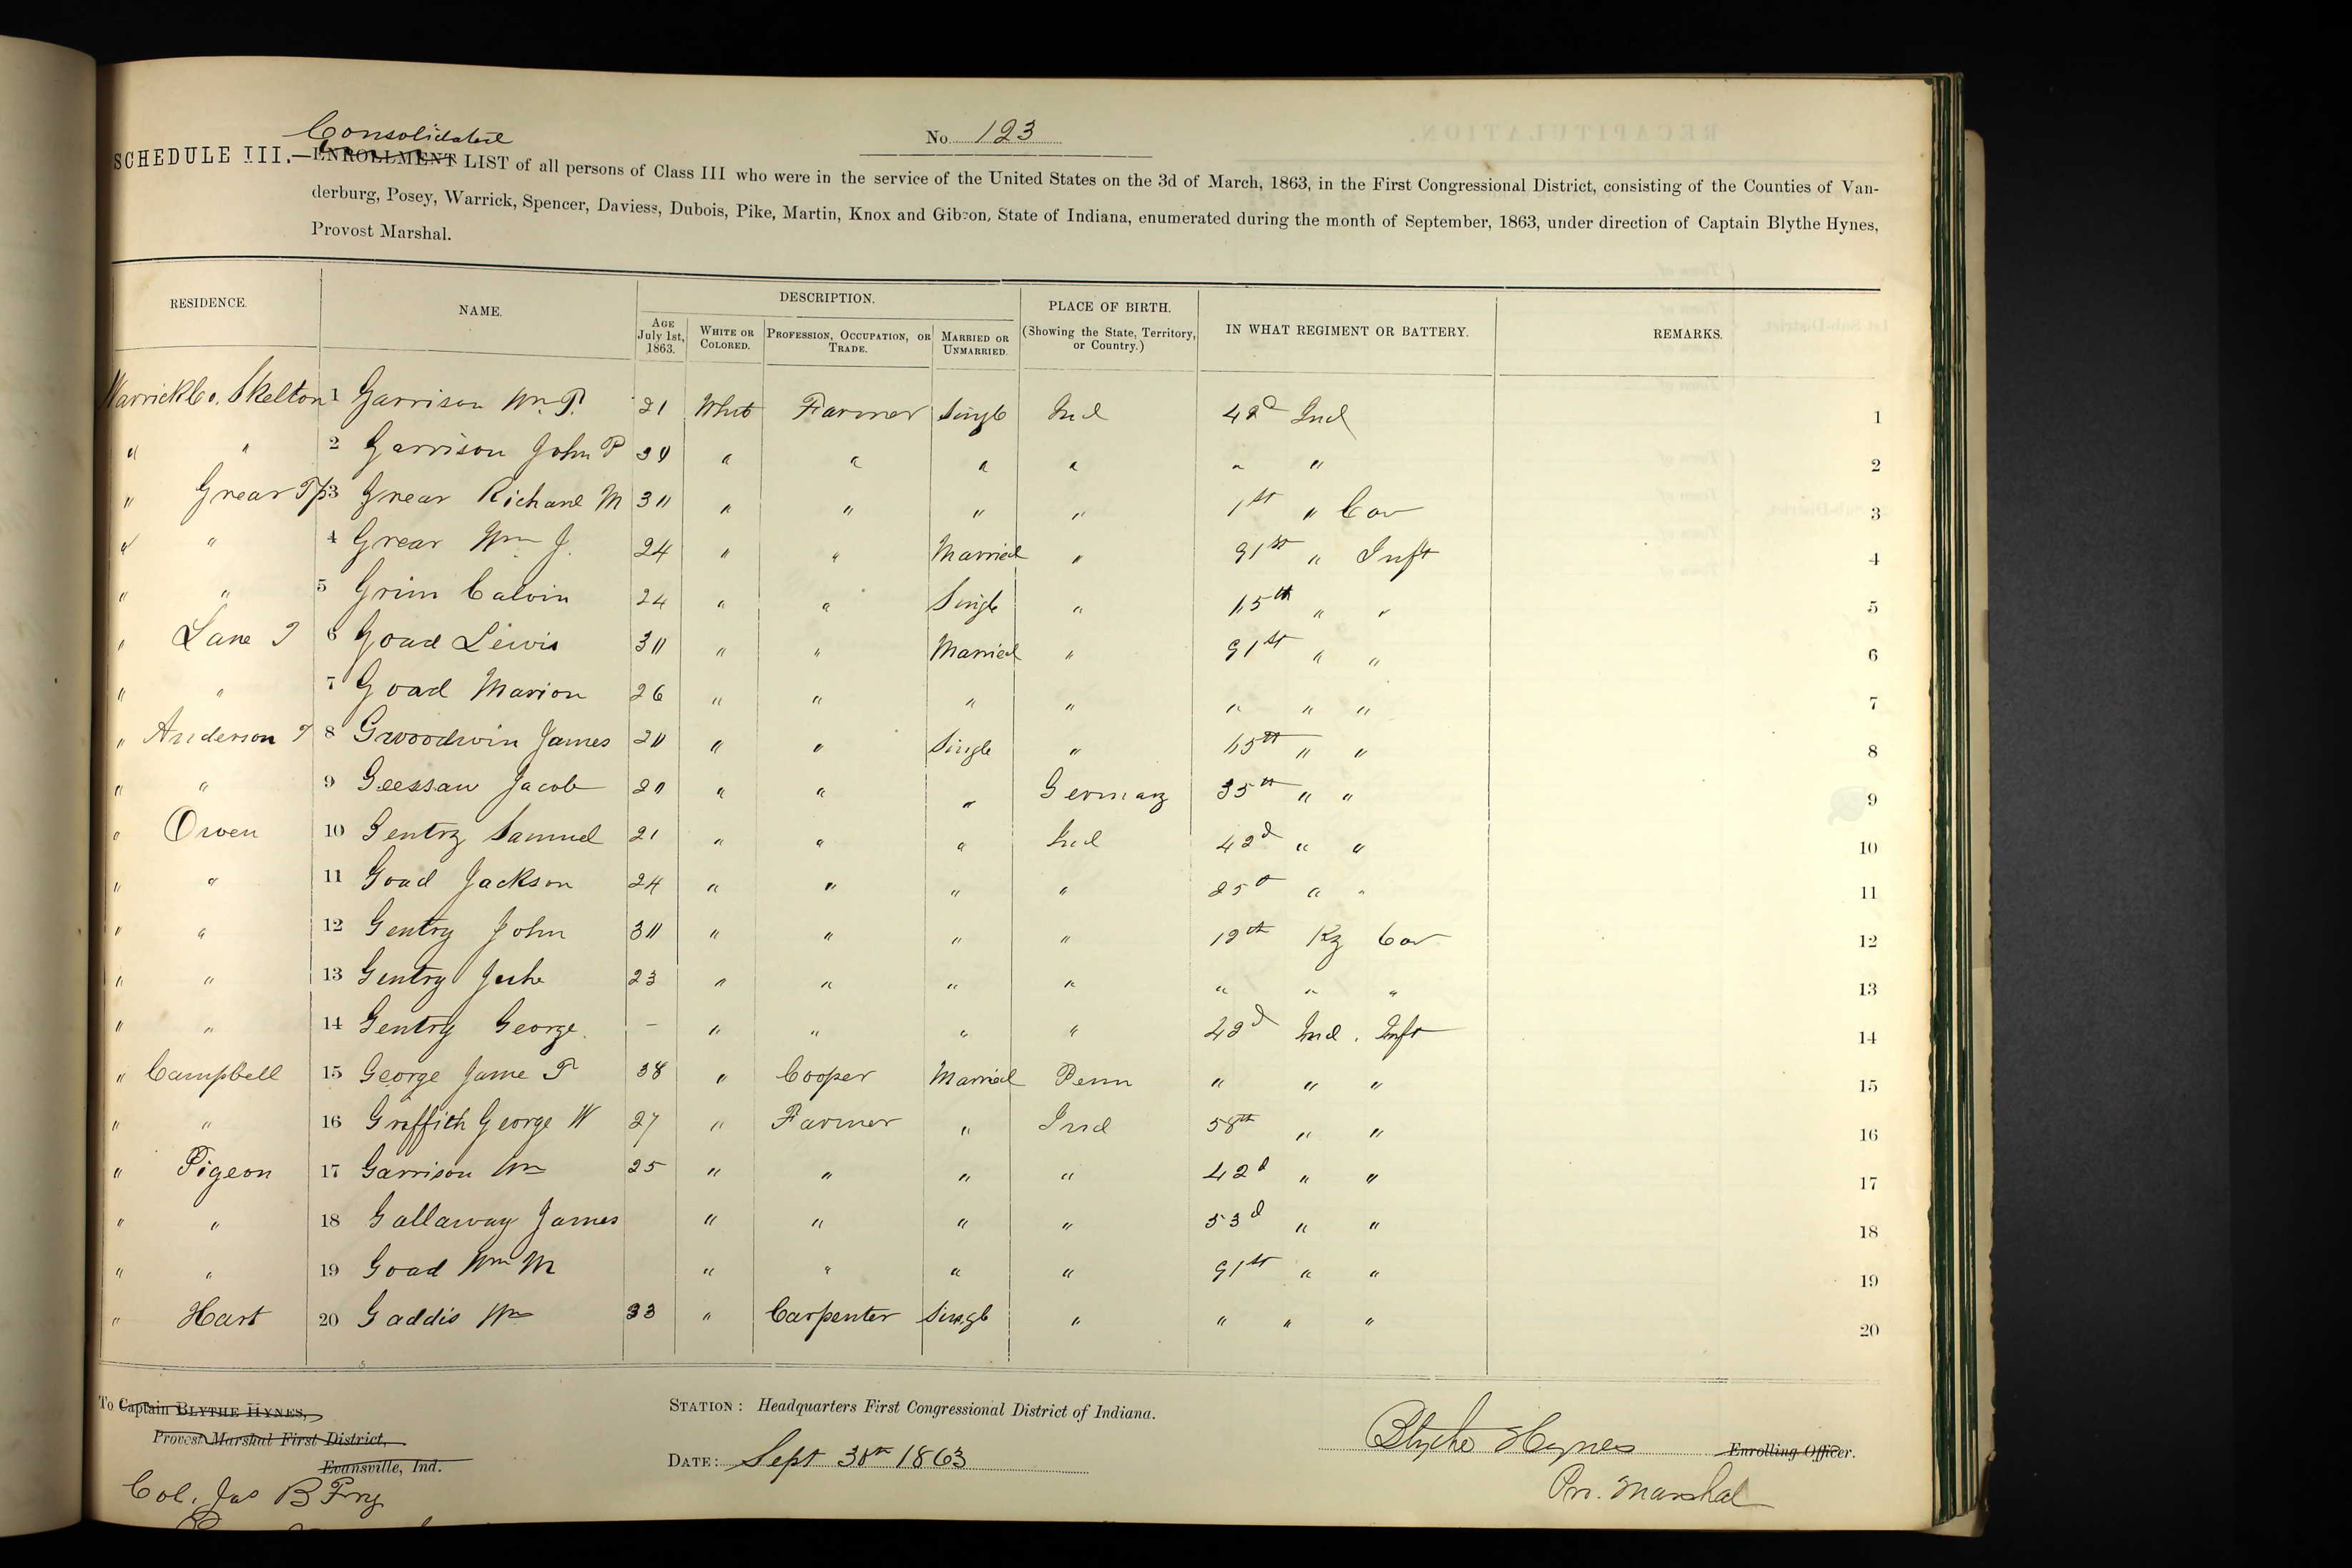 No. 123
Consolidated
SCHEDULE III.—ENROLLMENT LIST of all persons of Class III who were in the service of the United States on the 3d of March, 1863, in the First Congressional District, consisting of the Counties of Van-
derburg, Posey, Warrick, Spencer, Daviess, Dubois, Pike, Martin, Knox and Gibson, State of Indiana, enumerated during the month of September, 1863, under direction of Captain Blythe Hynes,
Provost Marshal.
RESIDENCE. NAME. DESCRIPTION. PLACE OF BIRTH. (Showing the State, Territory, or Country.) IN WHAT REGIMENT OR BATTERY. REMARKS.
AGE July 1st, 1863. WHITE OR COLORED. PROFESSION, OCCUPATION, OR TRADE. MARRIED OR UNMARRIED.
Warrick Co. Skelton 1 Garrison Wm. P. 21 Whit Farmer Single Ind 42d Ind 1
" " 2 Garrison John P " " " " " " 2
" Grear Tp 3 Grear Richard M 30 " " " " 1st " Cav 3
" " 4 Grear Wm J. 24 " " Married " 91st " Inft 4
" " 5 Grim Calvin 24 " " Single " 65th " " 5
" Lane T 6 Goad Lewis 30 " " Married " 91st " " 6
" " 7 Goad Marion 26 " " " " " " " 7
" Anderson T 8 Gwoodwin James 20 " " Single " 65th " " 8
" " 9 Jacob 20 " " " Germany 35th " " 9
" Owen 10 Gentry Samuel 21 " " " Ind 42d " " 10
" " 11 Goad Jackson 24 " " " " 25th " " 11
" " 12 Gentry John 30 " " " " 12th Ky Cav 12
" " 13 Gentry 23 " " " " " " " 13
" " 14 Gentry George. – " " " " 42d Ind. Inft 14
" Campbell 15 George Jame P 38 " Cooper Married Penn " " " 15
" " 16 Griffith George W 27 " Farmer " Ind 58th " " 16
" Pigeon 17 Garrison Wm 25 " " " " 42d " " 17
" " 18 Gallaway James " " " " 53d " " 18
" " 19 Goad Wm M " " " " 91st " " 19
" Hart 20 Gaddis Wm 33 " Carpenter Single " " " " 20
To Captain BLYTHE HYNES,
Provost Marshal First District,
Evansville, Ind.
Col. Jas B Fry
STATION: Headquarters First Congressional District of Indiana.
DATE: Sept 30th 1863
Blythe Hynes Enrolling Officer.
Pro. Marshal